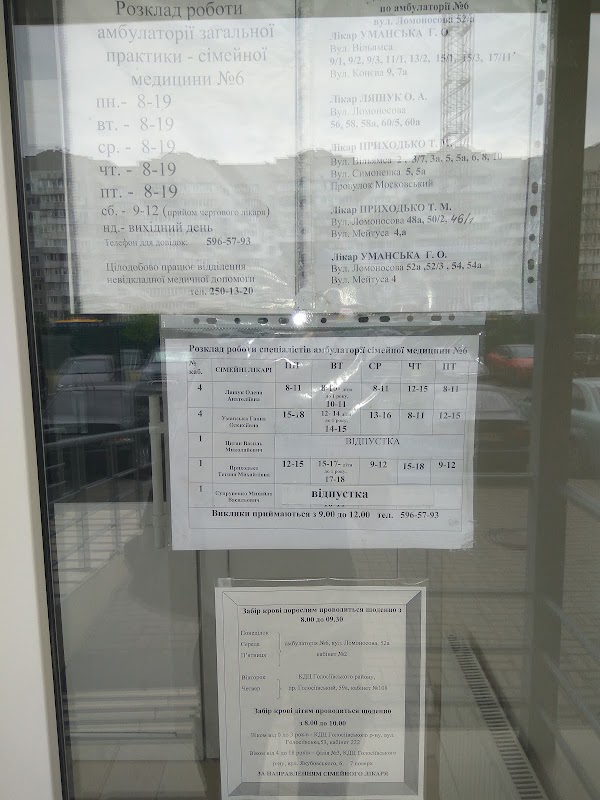 Розклад роботи
амбулаторії загальної
практики - сімейної
медицини №6
пн.- 8-19
вт. - 8-19
ср. - 8-19
чт. - 8-19
пт. - 8-19
сб. - 9-12 (прийом чергового лікаря)
нд.- вихідний день
Телефон для довідок: 596-57-93
Цілодобово працює відділення
невідкладної медичної допомоги
тел. 250-13-20
по амбулаторії №6
вул. Ломоносова 52-а
Лікар УМАНСЬКА Г. О.
Вул. Вільямса
9/1, 9/2, 9/3, 11/1, 13/2, 15/1, 15/3, 17/11
Вул. Конєва 9, 7а
Лікар ЛЯЩУК О. А.
Вул. Ломоносова
56, 58, 58а, 60/5, 60а
Лікар ПРИХОДЬКО Т. М.
Вул. Вільямса 2, 3/7, 3а, 5, 5а, 6, 8, 10
Вул. Симоненка 5, 5а
Провулок Московський
Лікар ПРИХОДЬКО Т. М.
Вул. Ломоносова 48а, 50/2, 46/1
Вул. Мейтуса 4,а
Лікар УМАНСЬКА Г. О.
Вул. Ломоносова 52а ,52/3 , 54, 54а
Вул. Мейтуса 4
Розклад роботи спеціалістів амбулаторії сімейної медицини №6
№ каб. СІМЕЙНІ ЛІКАРІ ПН ВТ СР ЧТ ПТ
4 Лящук Олена Анатоліївна 8-11 8-10- діти до 1 року, 10-11 8-11 12-15 8-11
4 Уманська Ганна Олексіївна 15-18 12-14 діти до 1 року, 14-15 13-16 8-11 12-15
1 Циган Василь Миколайович ВІДПУСТКА
1 Приходько Тетяна Михайлівна 12-15 15-17- діти до 1 року, 17-18 9-12 15-18 9-12
1 Супруненко Михайло Васильович відпустка
Виклики приймаються з 9.00 до 12.00 тел. 596-57-93
Забір крові дорослим проводиться щоденно з
8.00 до 09.30
Понеділок
Середа амбулаторія №6, вул. Ломоносова, 52а
П'ятниця кабінет №2
Вівторок КДЦ Голосіївського району,
Четвер пр. Голосіївський, 59а, кабінет №108
Забір крові дітям проводиться щоденно
з 8.00 до 10.00
Віком від 0 до 3 років - КДЦ Голосіївського р-ну, вул.
кабінет 222
Віком від 4 до 18 років - філія №3, КДЦ Голосіївського
р-ну, вул. Якубовського, 6 7 поверх
ЗА НАПРАВЛЕННЯМ СІМЕЙНОГО ЛІКАРЯ